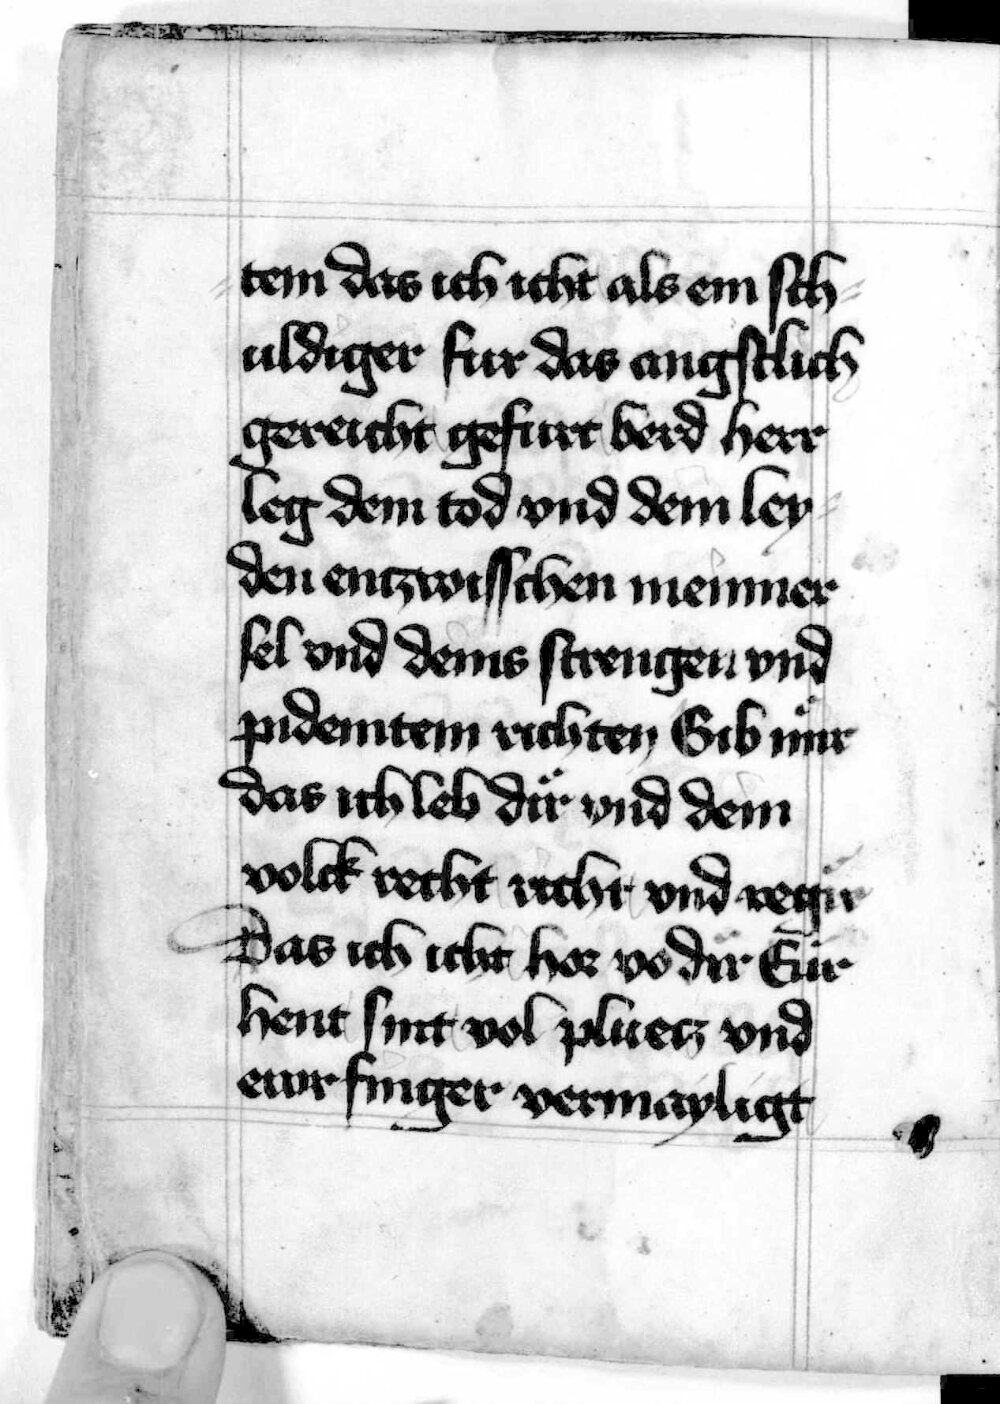 tem das ich icht als ein sch-
uldiger fur das angstlich
gereicht gefurt berd herr
leg dein tod vnd dein ley-
den entzwisschen meinner
sel vnd deins strengen vnd
pidemtem richten Gib mir
das ich leb dir vnd dein
volck recht richt vnd regir
Das ich icht hor vo dir Eur
hent sint vol pluetz vnd
ewr finger vermayligt